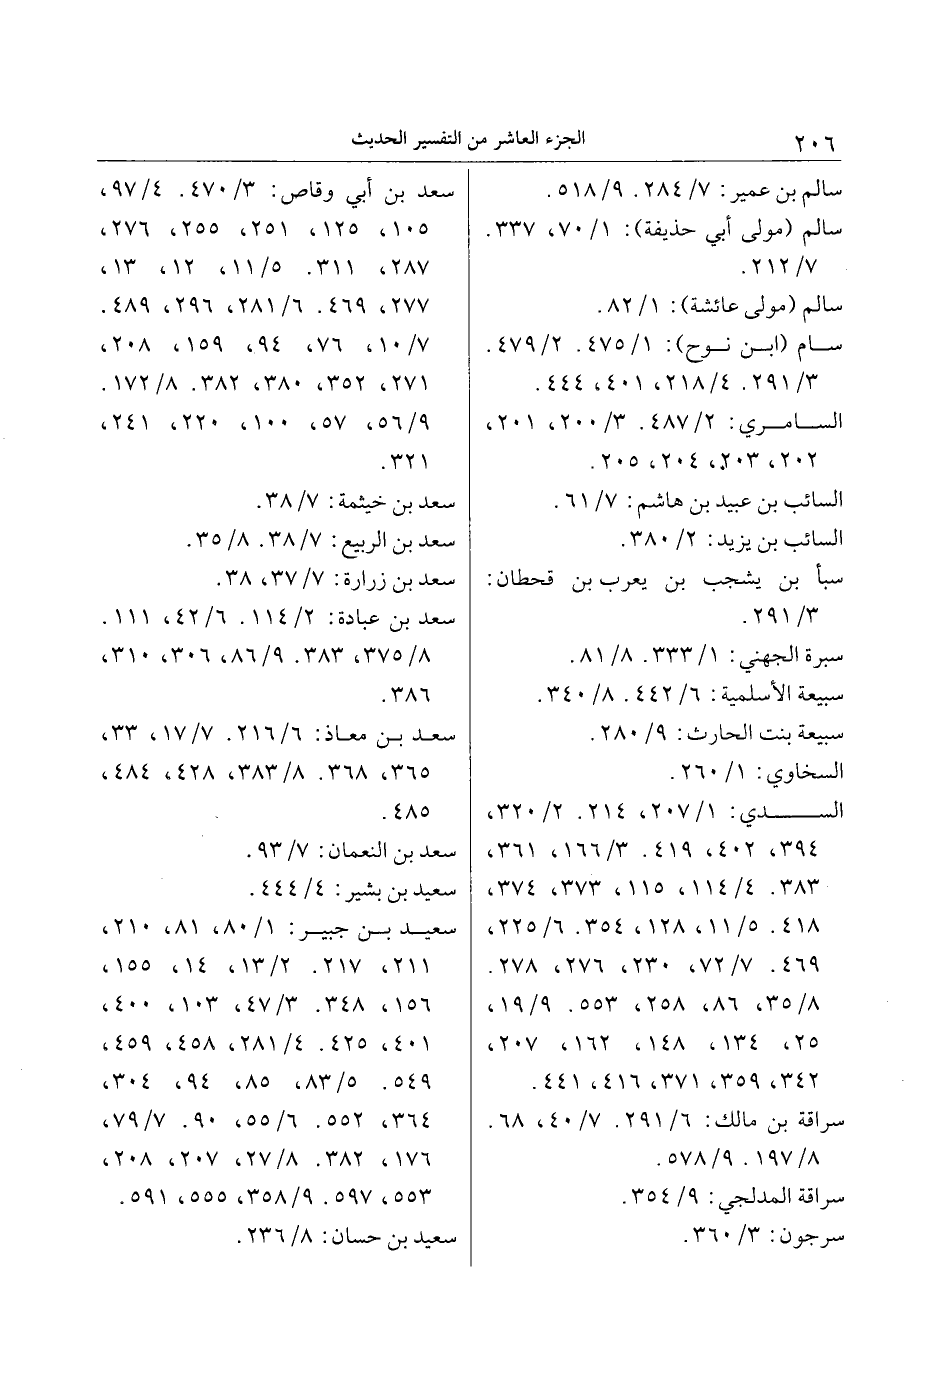 ٢٠٦
الجزء العاشر من التفسير الحديث
سالم بن عمير: ٧/ ٢٨٤. ٩/ ٥١٨.
سالم (مولى أبي حذيفة): ١/ ٧٠، ٣٣٧.
٧/ ٢١٢.
سالم (مولى عائشة): ١/ ٨٢.
سـام (ابـن نـوح): ١/ ٤٧٥. ٢/ ٤٧٩.
٣/ ٢٩١. ٤/ ٢١٨، ٤٠١، ٤٤٤.
الســامــري: ٢/ ٤٨٧. ٣/ ٢٠٠، ٢٠١،
٢٠٢، ٢٠٣، ٢٠٤، ٢٠٥.
السائب بن عبيد بن هاشم: ٧/ ٦١.
السائب بن يزيد: ٢/ ٣٨٠.
سبأ بن يشجب بن يعرب بن قحطان:
٣/ ٢٩١.
سبرة الجهني: ١/ ٣٣٣. ٨/ ٨١.
سبيعة الأسلمية: ٦/ ٤٤٢. ٨/ ٣٤٠.
سبيعة بنت الحارث: ٩/ ٢٨٠.
السخاوي: ١/ ٢٦٠.
الســـــدي: ١/ ٢٠٧، ٢١٤. ٢/ ٣٢٠،
٣٩٤، ٤٠٢، ٤١٩. ٣/ ١٦٦، ٣٦١،
٣٨٣. ٤/ ١١٤، ١١٥، ٣٧٣، ٣٧٤،
٤١٨. ٥/ ١١، ١٢٨، ٣٥٤. ٦/ ٢٢٥،
٤٦٩. ٧/ ٧٢، ٢٣٠، ٢٧٦، ٢٧٨.
٨/ ٣٥، ٨٦، ٢٥٨، ٥٥٣. ٩/ ١٩،
٢٥، ١٣٤، ١٤٨، ١٦٢، ٢٠٧،
٣٤٢، ٣٥٩، ٣٧١، ٤١٦، ٤٤١.
سراقة بن مالك: ٦/ ٢٩١. ٧/ ٤٠، ٦٨.
٨/ ١٩٧. ٩/ ٥٧٨.
سراقة المدلجي: ٩/ ٣٥٤.
سرجون: ٣/ ٣٦٠.
سعد بن أبي وقاص: ٣/ ٤٧٠. ٤/ ٩٧،
١٠٥، ١٢٥، ٢٥١، ٢٥٥، ٢٧٦،
٢٨٧، ٣١١. ٥/ ١١، ١٢، ١٣،
٢٧٧، ٤٦٩. ٦/ ٢٨١، ٢٩٦، ٤٨٩.
٧/ ١٠، ٧٦، ٩٤، ١٥٩، ٢٠٨،
٢٧١، ٣٥٢، ٣٨٠، ٣٨٢. ٨/ ١٧٢.
٩/ ٥٦، ٥٧، ١٠٠، ٢٢٠، ٢٤١،
٣٢١.
سعد بن خيثمة: ٧/ ٣٨.
سعد بن الربيع: ٧/ ٣٨. ٨/ ٣٥.
سعد بن زرارة: ٧/ ٣٧، ٣٨.
سعد بن عبادة: ٢/ ١١٤. ٦/ ٤٢، ١١١.
٨/ ٣٧٥، ٣٨٣. ٩/ ٨٦، ٣٠٦، ٣١٠،
٣٨٦.
سعـد بـن معـاذ: ٦/ ٢١٦. ٧/ ١٧، ٣٣،
٣٦٥، ٣٦٨. ٨/ ٣٨٣، ٤٢٨، ٤٨٤،
٤٨٥.
سعد بن النعمان: ٧/ ٩٣.
سعيد بن بشير: ٤/ ٤٤٤.
سعيـد بـن جبيـر: ١/ ٨٠، ٨١، ٢١٠،
٢١١، ٢١٧. ٢/ ١٣، ١٤، ١٥٥،
١٥٦، ٣٤٨. ٣/ ٤٧، ١٠٣، ٤٠٠،
٤٠١، ٤٢٥. ٤/ ٢٨١، ٤٥٨، ٤٥٩،
٥٤٩. ٥/ ٨٣، ٨٥، ٩٤، ٣٠٤،
٣٦٤، ٥٥٢. ٦/ ٥٥، ٩٠. ٧/ ٧٩،
١٧٦، ٣٨٢. ٨/ ٢٧، ٢٠٧، ٢٠٨،
٥٥٣، ٥٩٧. ٩/ ٣٥٨، ٥٥٥، ٥٩١.
سعيد بن حسان: ٨/ ٢٣٦.